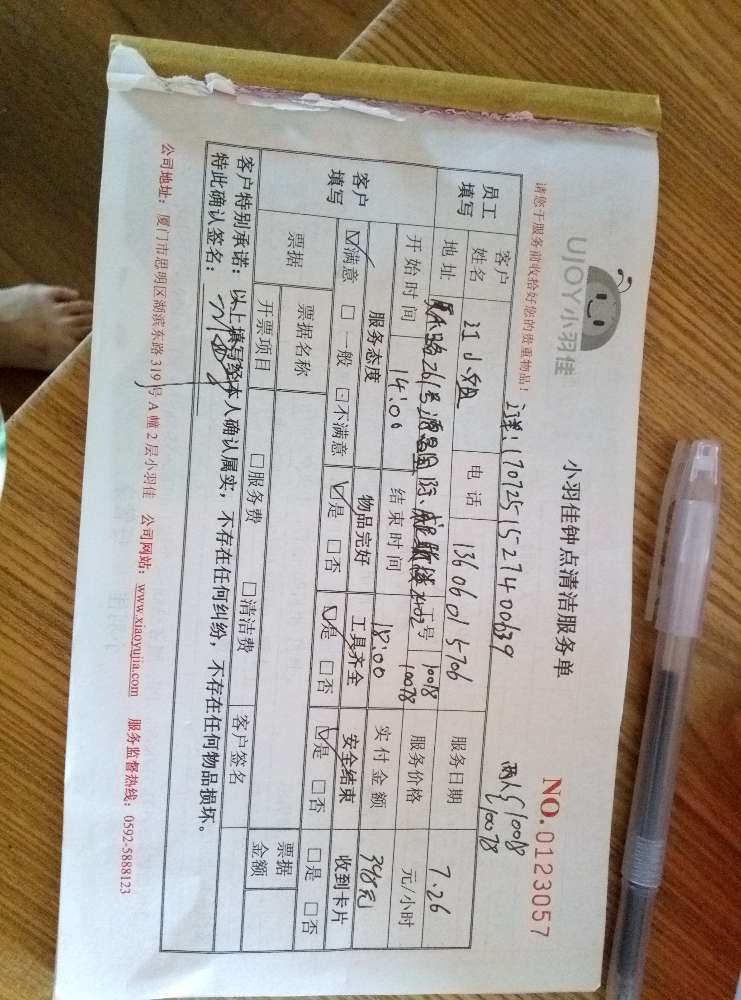 UJOY小羽佳
小羽佳钟点清洁服务单
NO.0123057
请您于服务前收拾好您的贵重物品！
1707251527400639
两人 10018
10078
员工填写
客户姓名 江小姐 电话 13606015706 服务日期 7.26
地址 261号 2402 工号 10018 10078 服务价格 元/小时
开始时间 14:00 结束时间 18:00 实付金额 398元
客户填写
服务态度 物品完好 工具齐全 安全结束 收到卡片
☑满意 □一般 □不满意 ☑是 □否 ☑是 □否 ☑是 □否 □是 □否
票据 票据名称 □服务费 □清洁费 客户签名 票据金额
开票项目
客户特别承诺：以上填写经本人确认属实，不存在任何纠纷，不存在任何物品损坏。
特此确认签名：
公司地址：厦门市思明区湖滨东路319号A幢2层小羽佳 公司网站：www.xiaoyujia.com 服务监督热线：0592-5888123